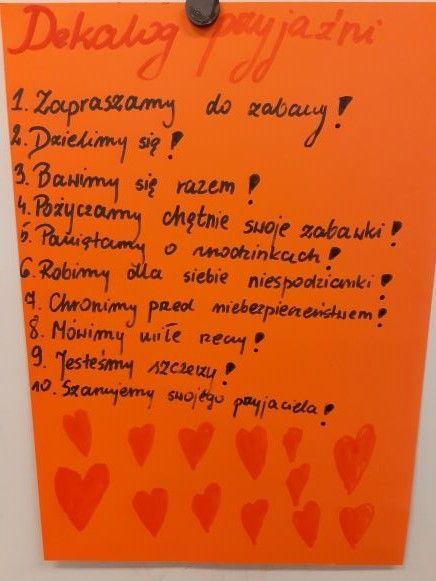 Dekalog przyjaźni
1. Zapraszamy do zabawy!
2. Dzielimy się!
3. Bawimy się razem!
4. Pożyczamy chętnie swoje zabawki!
5. Pamiętamy o urodzinkach!
6. Robimy dla siebie niespodzianki!
7. Chronimy przed niebezpieczeństwem!
8. Mówimy miłe rzeczy!
9. Jesteśmy szczerzy!
10. Szanujemy swojego przyjaciela!